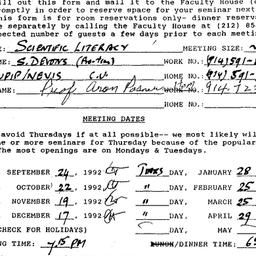 ll out this form and mail it to the Faculty House (
romptly in order to reserve space for your seminar next
is form is for room reservations only- dinner reserv
e separately by calling the Faculty House at (212) 85
pected number of guests a few days prior to each meeti
ME: SCIENTIFIC LITERACY MEETING SIZE:
ME: S. DEVONS (Pro-tem) WORK NO.: (914)591-
HOME NO.: (914)591-
Prof. Aron WORK NO.: 914-723
HOME NO.:
MEETING DATES
avoid Thursdays if at all possible-- we most likely will
e or more seminars for Thursday because of the popular
The most openings are on Mondays & Tuesdays.
SEPTEMBER 24, 1992 THURSDAY, JANUARY 28
OCTOBER 22, 1992 " DAY, FEBRUARY 25
NOVEMBER 19, 1992 " DAY, MARCH 25
DECEMBER 17, 1992 " DAY, APRIL 29
(CHECK FOR HOLIDAYS) DAY, MAY
NG TIME: 7.15 PM LUNCH/DINNER TIME: 6